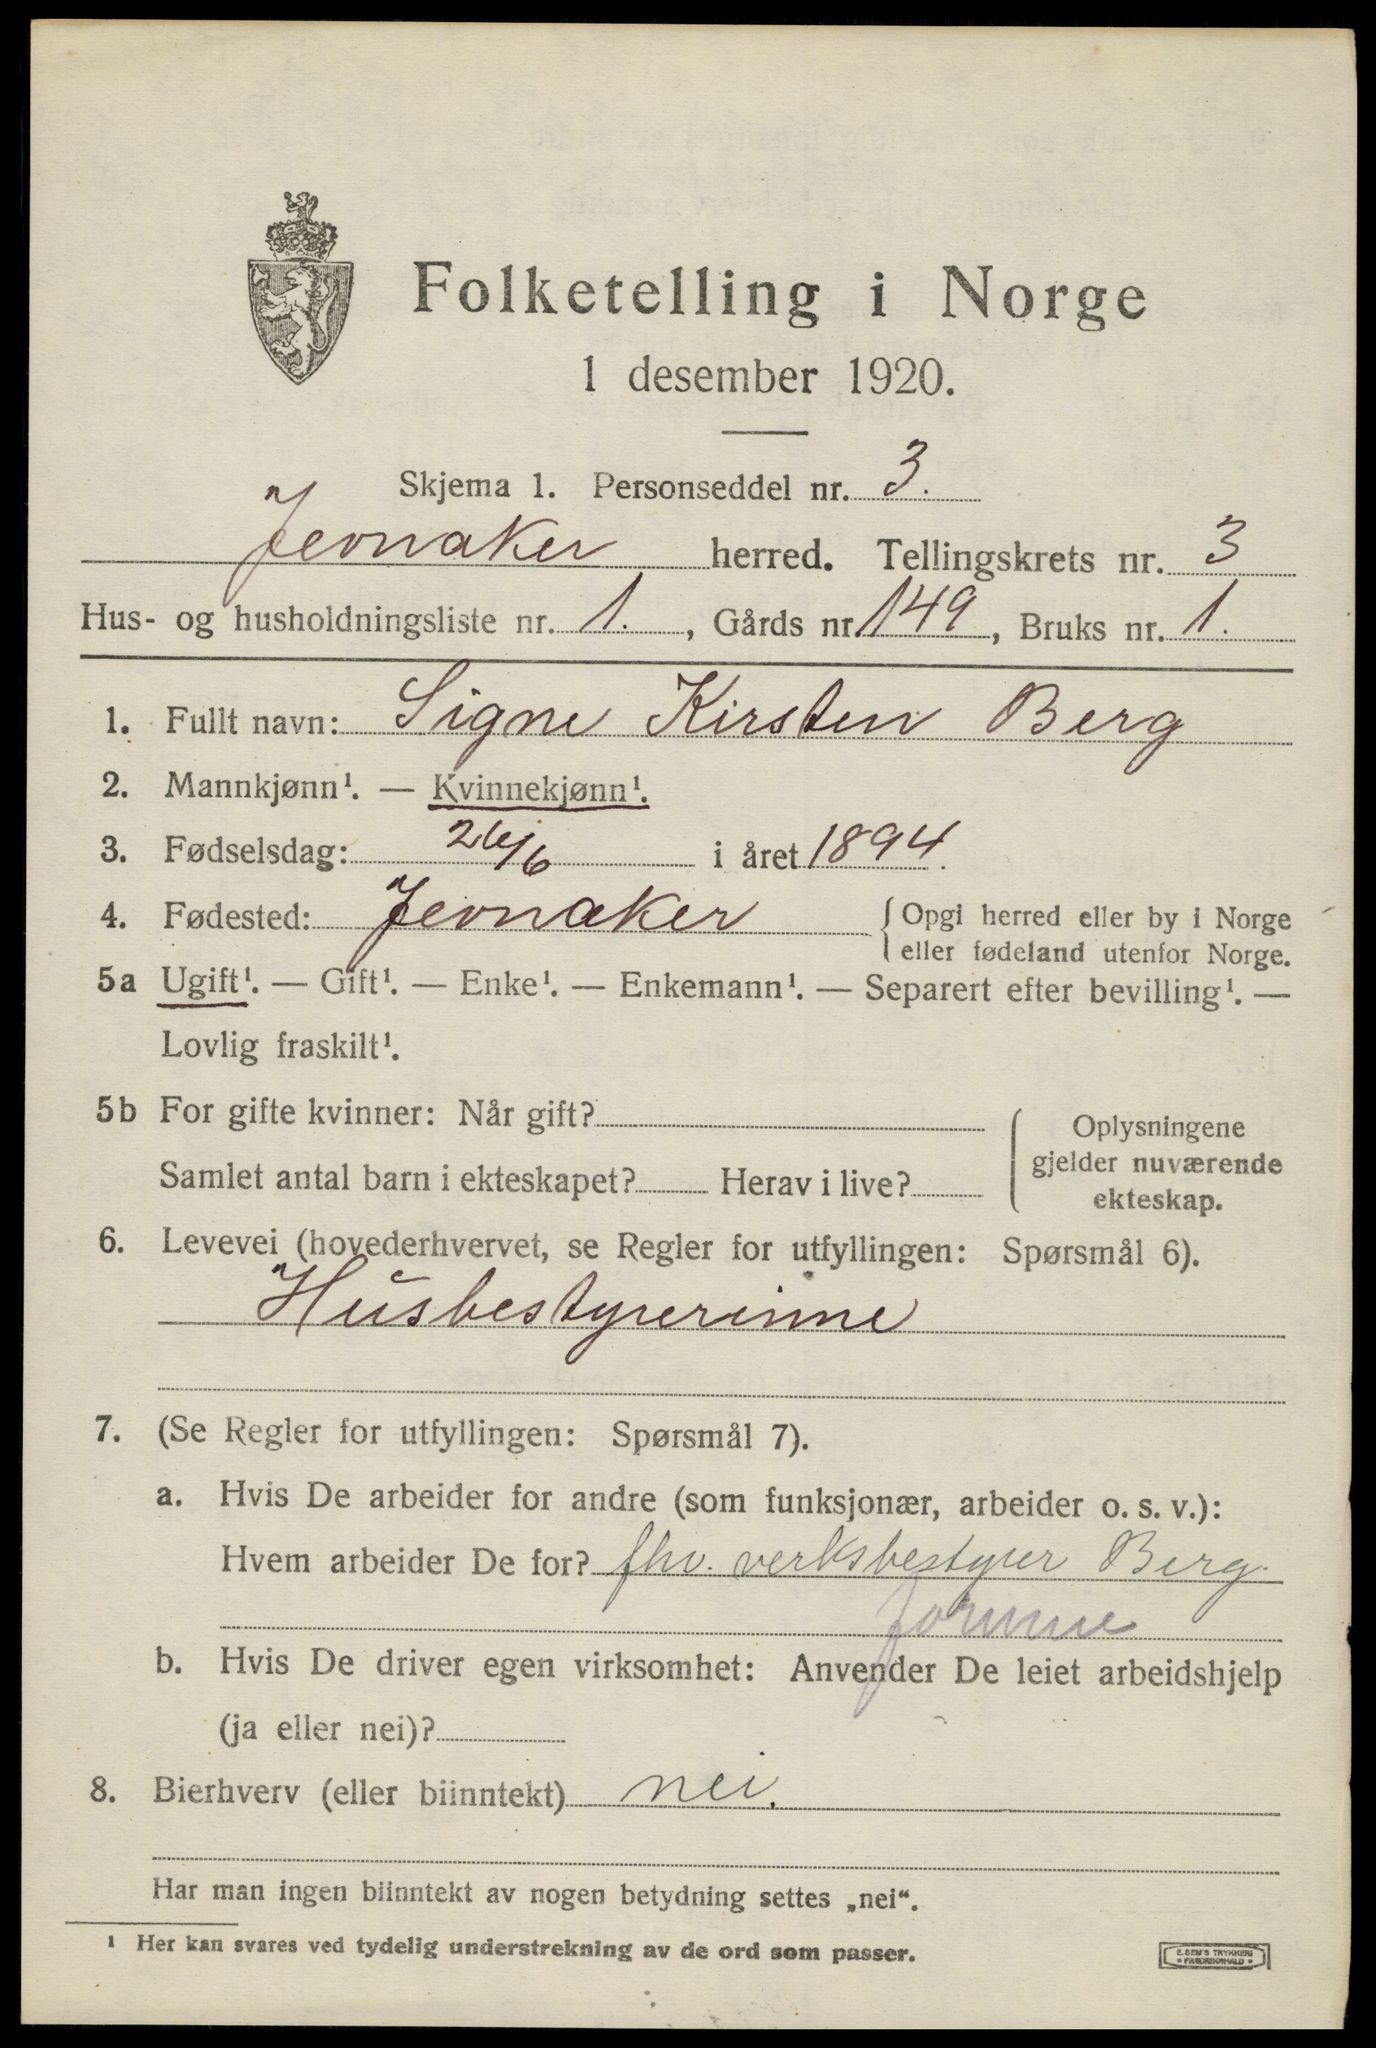 Folketelling i Norge
1 desember 1920.
Skjema 1. Personseddel nr. 3.
Jevnaker herred. Tellingskrets nr. 3
Hus- og husholdningsliste nr. 1., Gårds nr. 149, Bruks nr. 1.
1. Fullt navn: Signe Kirsten Berg
2. Mannkjønn¹. — Kvinnekjønn¹.
3. Fødselsdag: 26/6 i året 1894.
4. Fødested: Jevnaker {Opgi herred eller by i Norge
eller fødeland utenfor Norge.
5a Ugift¹. — Gift¹. — Enke¹. — Enkemann¹. — Separert efter bevilling¹. —
Lovlig fraskilt¹.
5b For gifte kvinner: Når gift?
Samlet antal barn i ekteskapet? Herav i live?
Oplysningene
gjelder nuværende
ekteskap.
6. Levevei (hovederhvervet, se Regler for utfyllingen: Spørsmål 6).
Husbestyrerinne
7. (Se Regler for utfyllingen: Spørsmål 7).
a. Hvis De arbeider for andre (som funksjonær, arbeider o. s. v.):
Hvem arbeider De for? fhv. verksbestyrer Berg.
b. Hvis De driver egen virksomhet: Anvender De leiet arbeidshjelp
(ja eller nei)?
8. Bierhverv (eller biinntekt) nei.
Har man ingen biinntekt av nogen betydning settes „nei“.
¹ Her kan svares ved tydelig understrekning av de ord som passer.
E. SEM'S TRYKKERI
• FREDRIKSHALD •